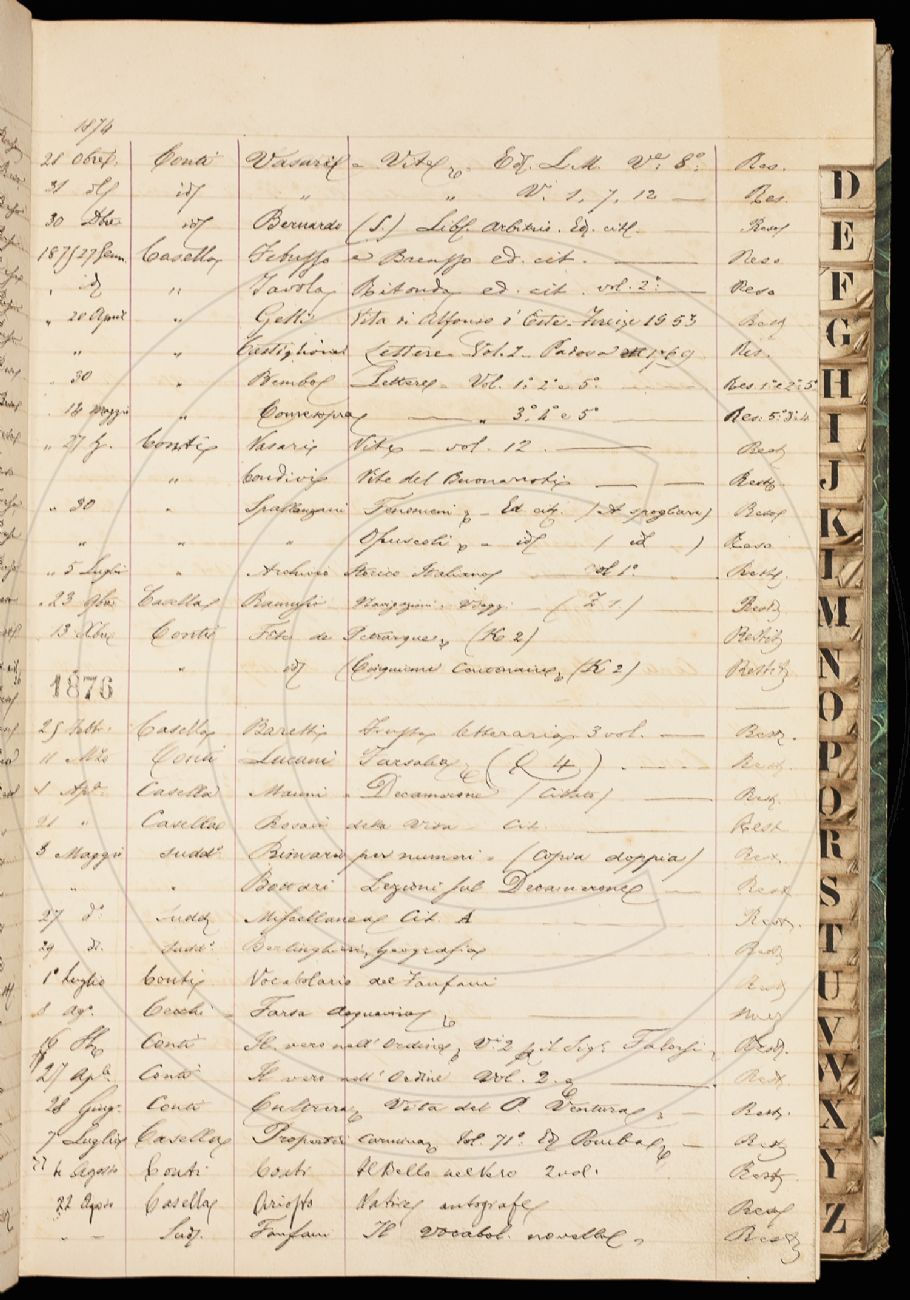 1874
28 Obre. Conti Vasari - Vite, Ed. L.M. Ve. 8o. Res.
31 id id " " V. 1, 7, 12 — Res.
30 Dbre id Bernardo (S.) Lib. Arbitrio. Ed. cit. - Res
1875 27 Genn. Casella e ed. cit. — Reso
" id " Tavola Ritonda ed. cit. vol. 2o — Reso
" 20 Aprile " Gelli Vita di Alfonso d'Este. Firenze 1553 Rest
" " Castiglione Lettere Vol. 2 - Padova 1769 Res.
30 " Bembo Lettere - Vol. 1o. 2o e 5o Res 1o e 2o 5o
14 Maggio " — " 3o. 4o e 5o Res. 5o 3o 4
" 27 Conti Vasari Vite - vol. 12. — Rest
" Condivi Vita del Buonarroti — — Rest.
" 30 " Spallanzani Fenomeni, - Ed cit. (A spogliare) Rest
" " " Opuscoli, - id ( id ) Reso
" 5 Luglio " Archivio Storico Italiano — Vol 1o. Rest.
" 23 9bre Casella Ramusio Navigazioni. Viaggi — (Z 1.) Rest
" 13 Xbre Conti de Petrarque, (K 2) Restit
" id (K 2) Restit
1876
25 Febb. Casella Baretti Frusta letteraria 3 vol. — Rest.
11 Mzo Conti Lucani Farsalia, ( 4) . — Rest
1 Apr. Casella Manni - Decamerone (citato) — Rest.
21 " Casella Rosaio della Vita - Cit. — Rest
3 Maggio sudd.o per numeri. (Copia doppia) Rest.
" " Lezioni sul Decamerone — Rest
27 do. Sudd Miscellanea Cit. A Rest.
29 d. Sudd.o Berlinghieri, Geografia Rest
1o Luglio Conti Vocabolario del Fanfani Rest
8 Ago. Cecchi - Farsa —
16 Conti Il vero nell'Ordine, Vo. 2 il Sigr. Rest.
27 Aple. Conti Il vero nell'Ordine Vol. 2. — Rest
28 Giug. Conti Vita del P. Ventura, — Rest.
7 Luglio Casella Propertii carmina, Vol. 71o. Ed Pomba, — Rest
4 Agosto Conti Conti Il Bello nel Vero 2 vol. Rest.
22 Agosto Casella Ariosto Satire autografe Rest
" - Sud. Fanfani Il Vocabol. novello, Rest
D
E
F
G
H
I
J
K
L
M
N
O
P
Q
R
S
T
U
V
W
X
Y
Z